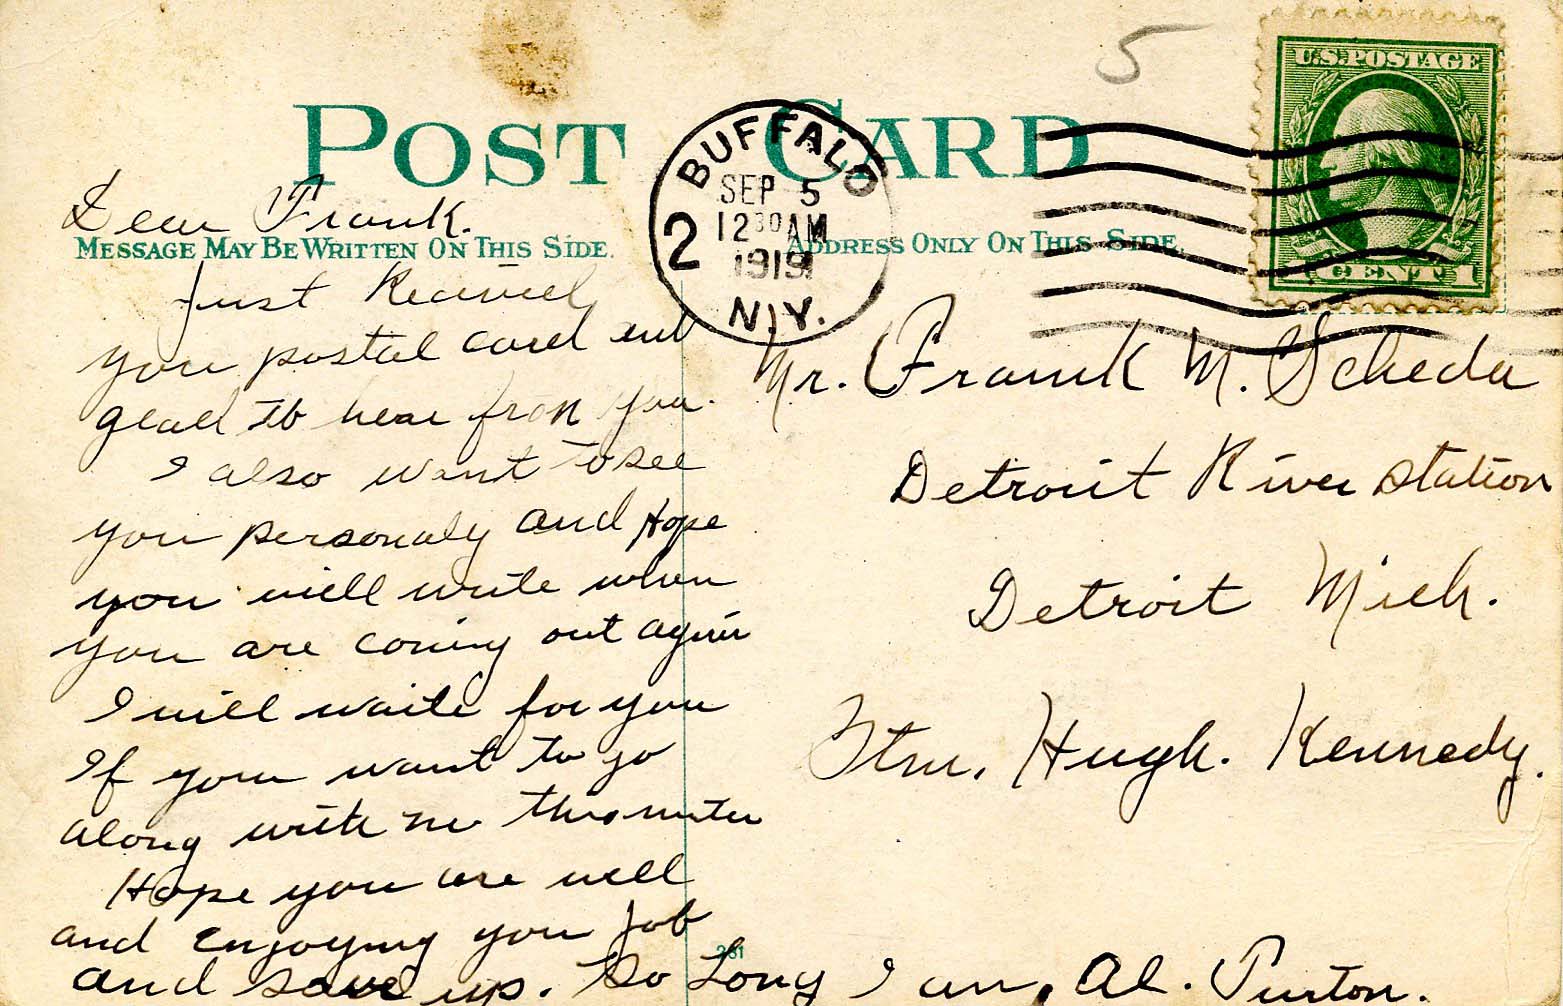 5
U.S. POSTAGE
POST CARD
BUFFALO
SEP 5
1230 AM
1919
N.Y.
2
1 CENT 1
MESSAGE MAY BE WRITTEN ON THIS SIDE.
ADDRESS ONLY ON THIS SIDE.
Dear Frank.
Just Received
you postal card and
glad to hear from you.
I also want to see
you personaly and Hope
you will write when
you are coming out again
I will waite for you
If you want to go
along with me this winter
Hope you are well
and enjoying you job
and save up. So Long I am, Al.
Mr. Frank M. Scheda
Detroit River Station
Detroit Mich.
Stm. Hugh. Kennedy.
281